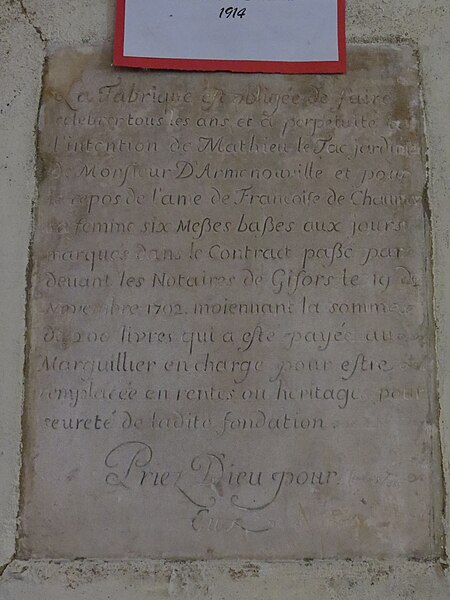 1914
La Fabrique est obligée de faire
celebrer tous les ans et a perpetuité
l'intention de Mathieu le Jac jardinier
de Monsieur D'Armenowille et pour
le repos de l'ame de Francoise de Chaumo
sa femme six Meßes baßes aux jours
marques dans le Contract paßé par
deuant les Notaires de Gisors le 19 de
Novembre 1702. moiennant la somme
de 200 livres qui a esté payée au
Marguillier en charge pour estre
remplacée en rentes ou heritage pour
seureté de ladite fondation
Priez Dieu pour
Eux